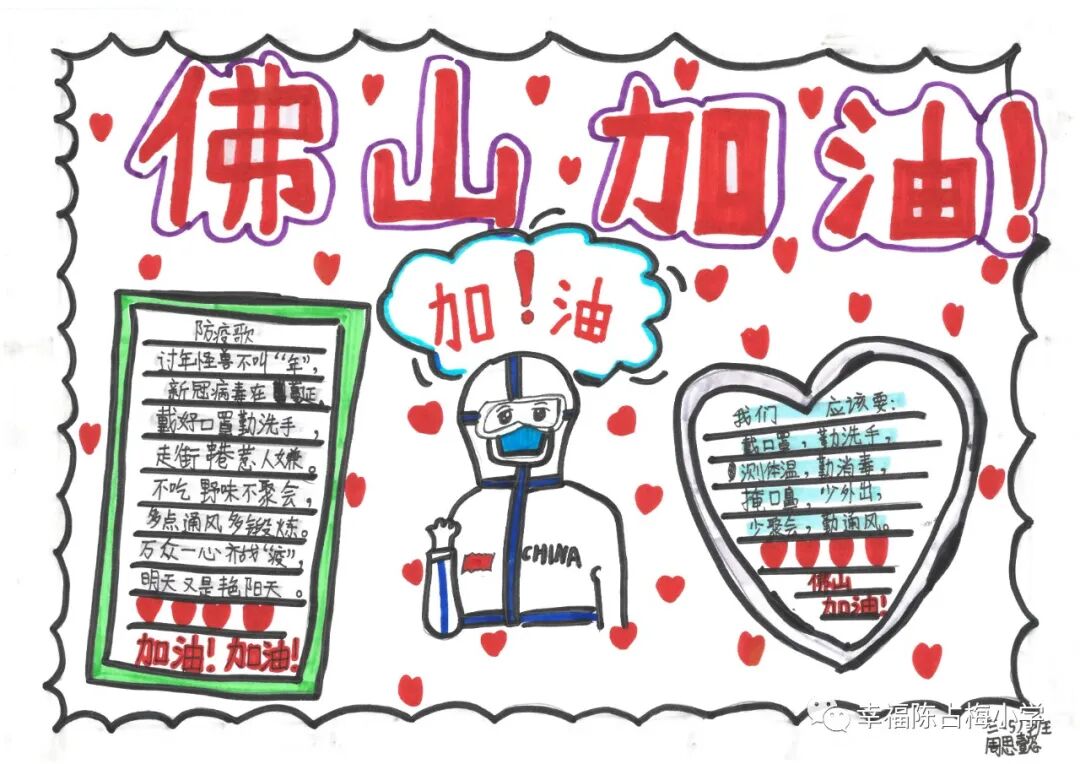 佛山加油!
加!油
防疫歌
过年怪兽不叫“年”,
新冠病毒在
戴好口罩勤洗手,
走街串巷惹人嫌。
不吃野味不聚会,
多点通风多锻炼。
万众一心齐战“疫”,
明天又是艳阳天。
加油!加油!
CHINA
我们应该要:
戴口罩,勤洗手,
测体温,勤消毒,
掩口鼻,少外出,
少聚会,勤通风。
佛山
加油!
幸福陈占梅小学
周思